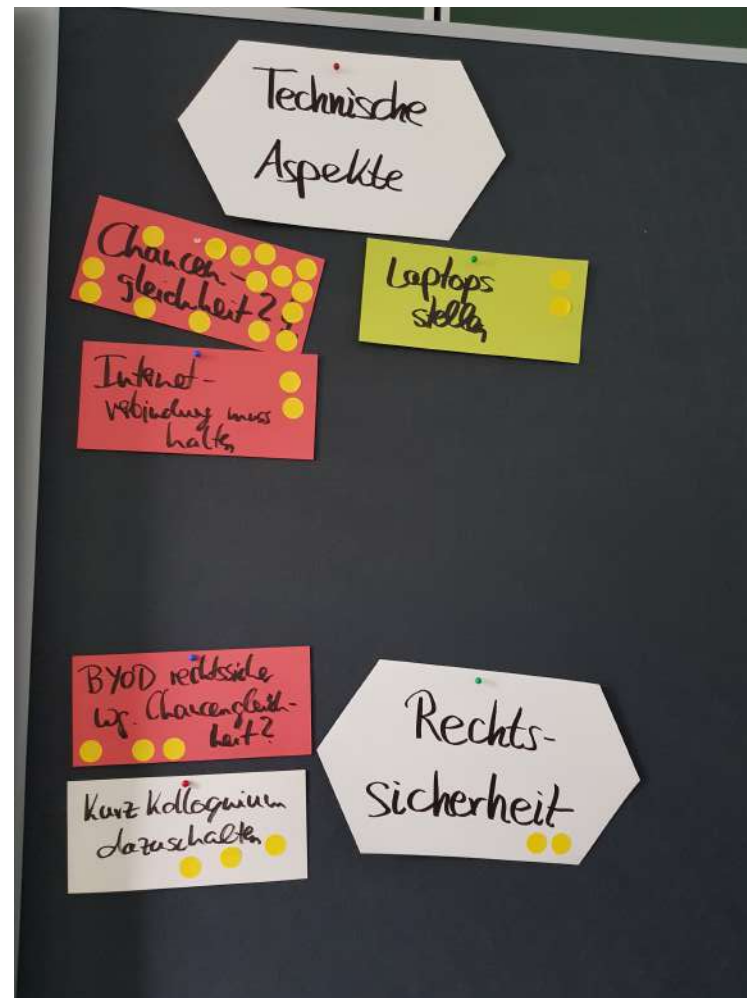 Technische
Aspekte
Chancen-
gleichheit?
Laptops
stellen
Internet-
verbindung muss
halten
BYOD rechtssicher
wg. Chancengleich-
heit?
Rechts-
sicherheit
Kurz Kolloquium
dazuschalten